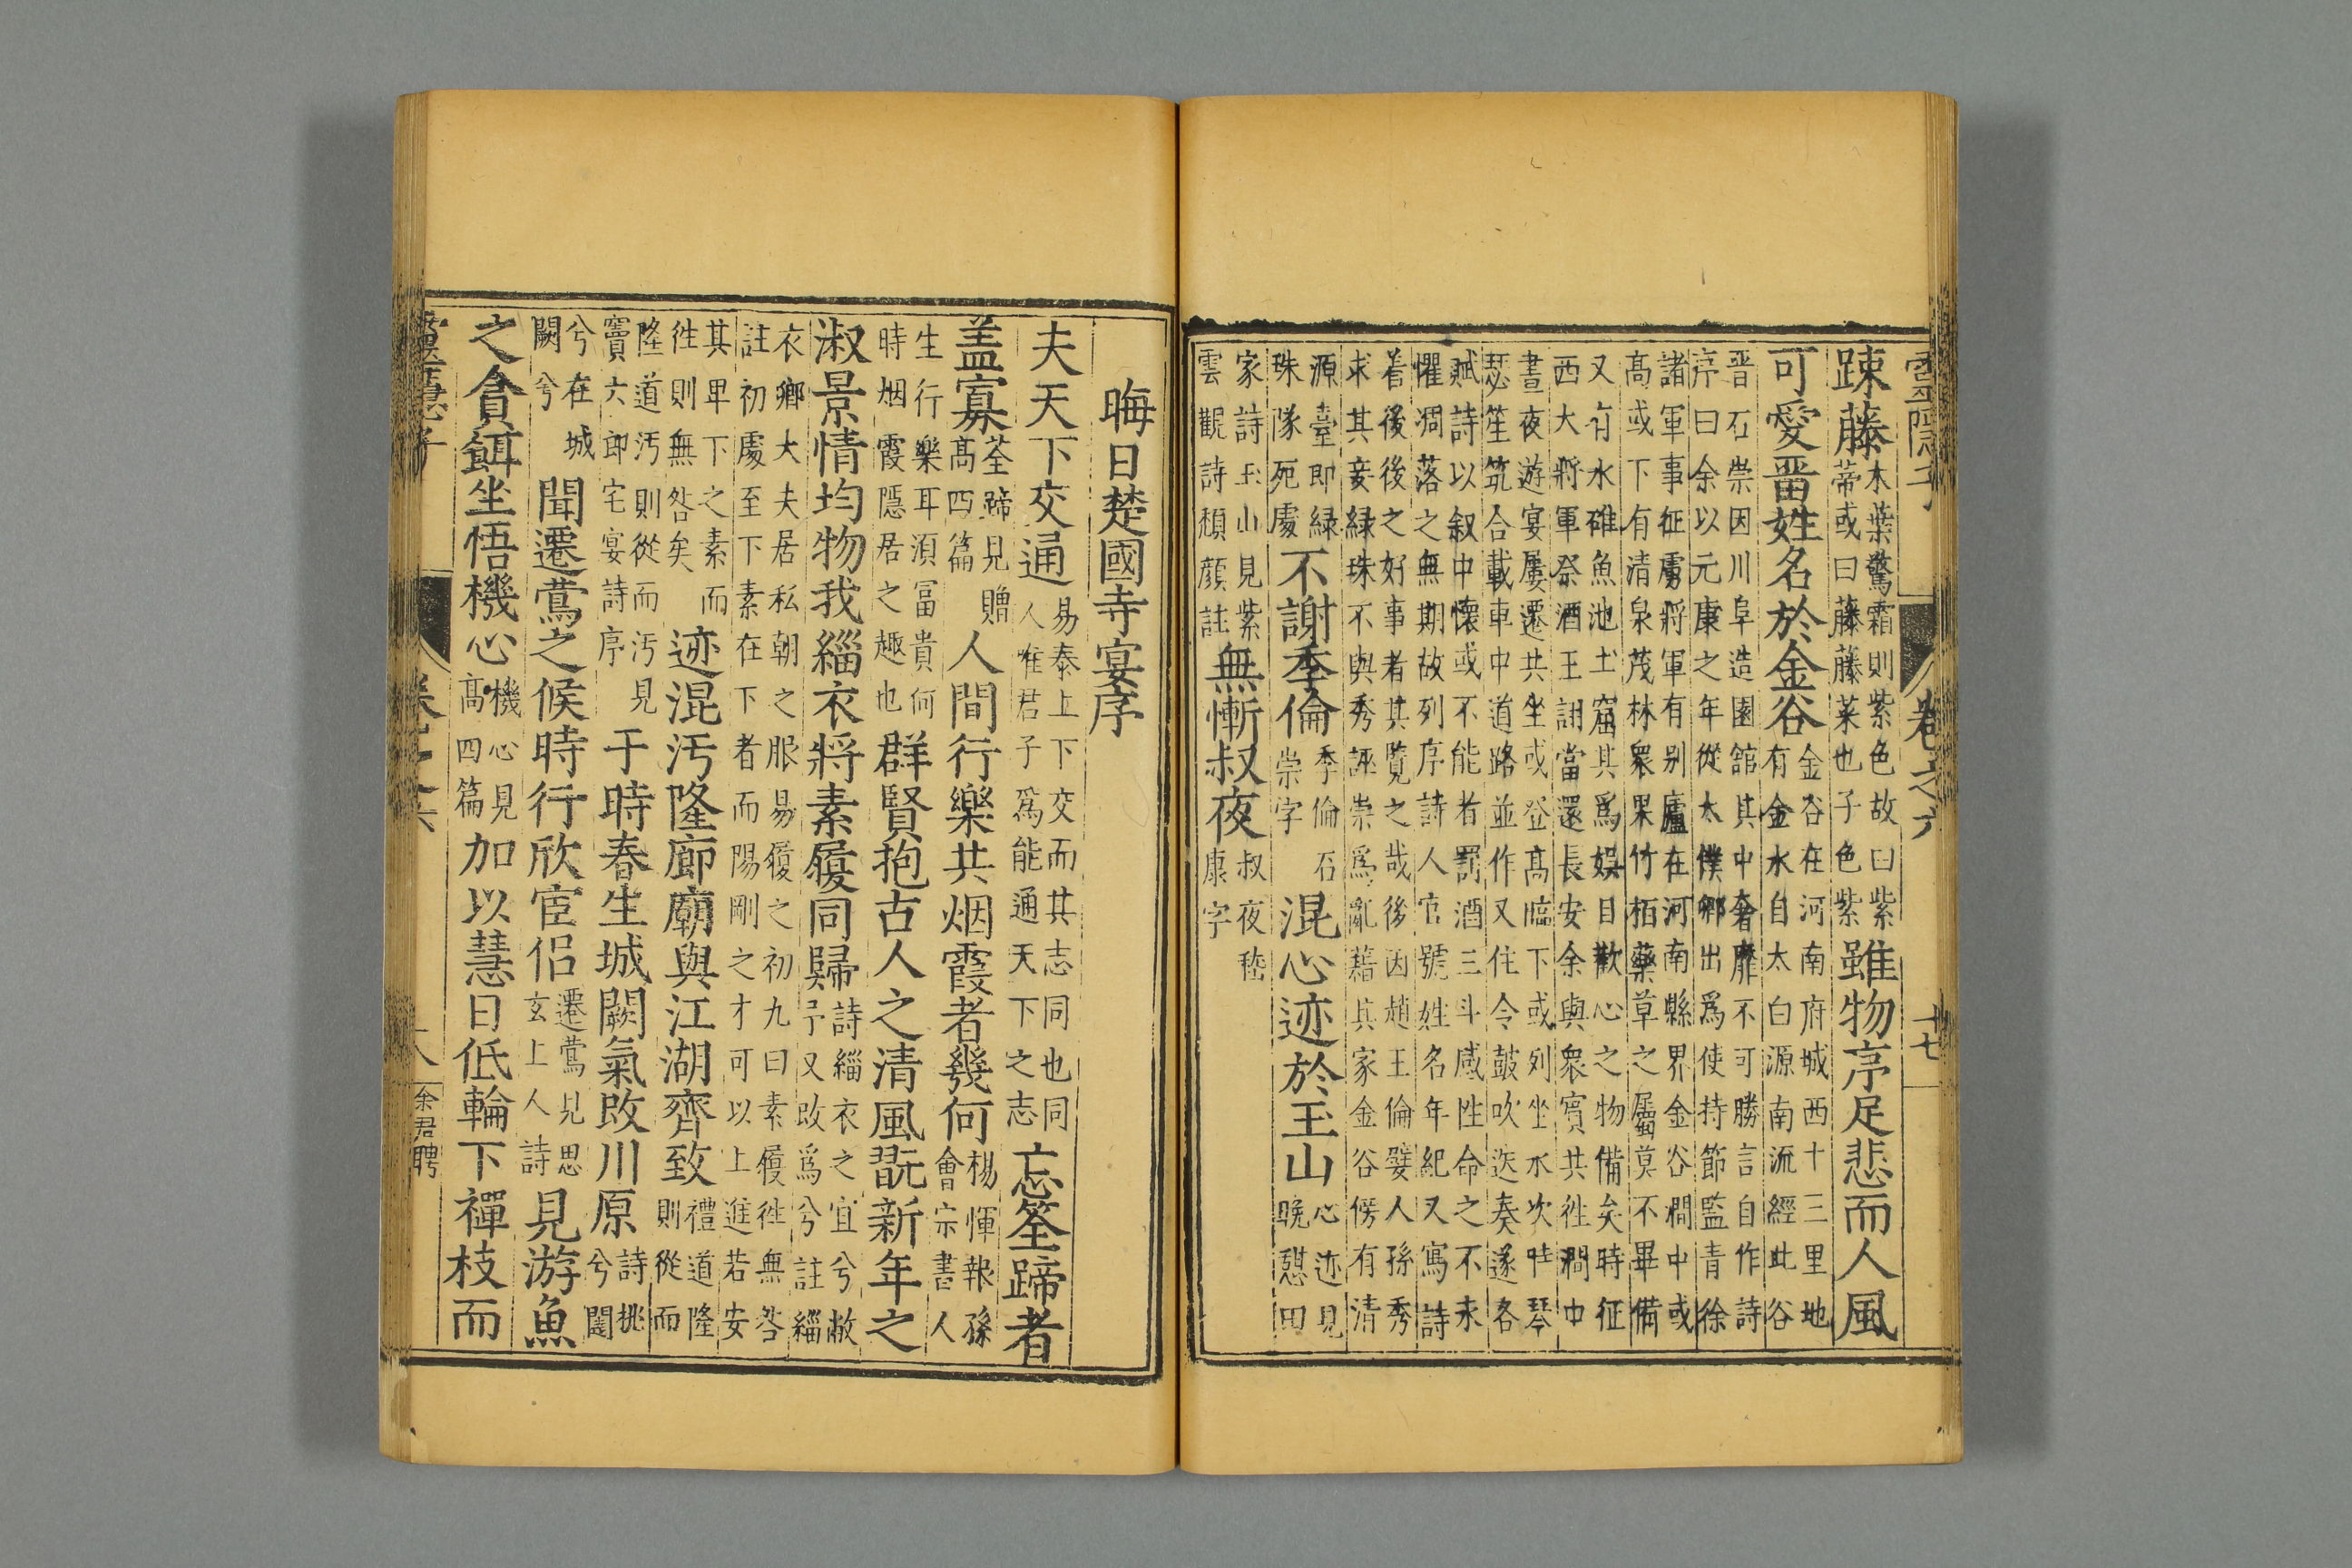 靈隱子
卷之六
十七
踈藤
木葉驚霜則紫色故曰紫
蒂或曰藤藤菜也子色紫
雖物序足悲而人風
可愛畱姓名於金谷
金谷在河南府城西十三里地
有金水自太白源南流經此谷
晋石崇因川阜造園館其中奢靡不可勝言自作詩
序曰余以元康之年從太僕卿出爲使持節監青徐
諸軍事征虜將軍有别廬在河南縣界金谷澗中或
髙或下有清泉茂林衆果竹栢藥草之屬莫不畢備
又有水碓魚池土窟其爲娛目歡心之物備矣時征
西大將軍祭酒王詡當還長安余與衆賓共徃澗中
晝夜遊宴屢遷共坐或登髙臨下或列坐水次時琴
瑟笙筑合載車中道路並作又住令鼓吹迭奏遂各
賦詩以叙中懷或不能者罰酒三斗感性命之不永
懼凋落之無期故列序詩人官號姓名年紀又寫詩
着後後之好事者其覽之哉後因趙王倫嬖人孫秀
求其妾緑珠不與秀誣崇爲亂藉其家金谷傍有清
源臺即緑
珠隊死處
不謝季倫
季倫石
崇字
混心迹於玉山
心迹見
晚憇田
家詩玉山見紫
雲觀詩頹顔註
無慚叔夜
叔夜嵇
康字
晦日楚國寺宴序
夫天下交通
易泰上下交而其志同也同
人唯君子爲能通天下之志
忘筌蹄者
盖寡
荃蹄見贈
髙四篇
人間行樂共烟霞者幾何
楊惲報孫
會宗書人
生行樂耳湏冨貴何
時烟霞隱居之趣也
群賢抱古人之清風翫新年之
淑景情均物我緇衣將素履同歸
詩緇衣之宜兮敝
予又改爲兮註緇
衣卿大夫居私朝之服易履之初九曰素履徃無咎
註初處至下素在下者而陽剛之才可以上進若安
其畢下之素而
徃則無咎矣
迹混汚隆廊廟與江湖齊致
禮道隆
則從而
隆道汚則從而汚見
竇六郎宅宴詩序
于時春生城闕氣改川原
詩挑
兮闥
兮在城
闕兮
聞遷鶯之候時行欣宦侣
遷鶯見思
玄上人詩
見游魚
之貪餌坐悟機心
機心見
髙四篇
加以慧日低輪下禪枝而
卷之六
十八
余君聘